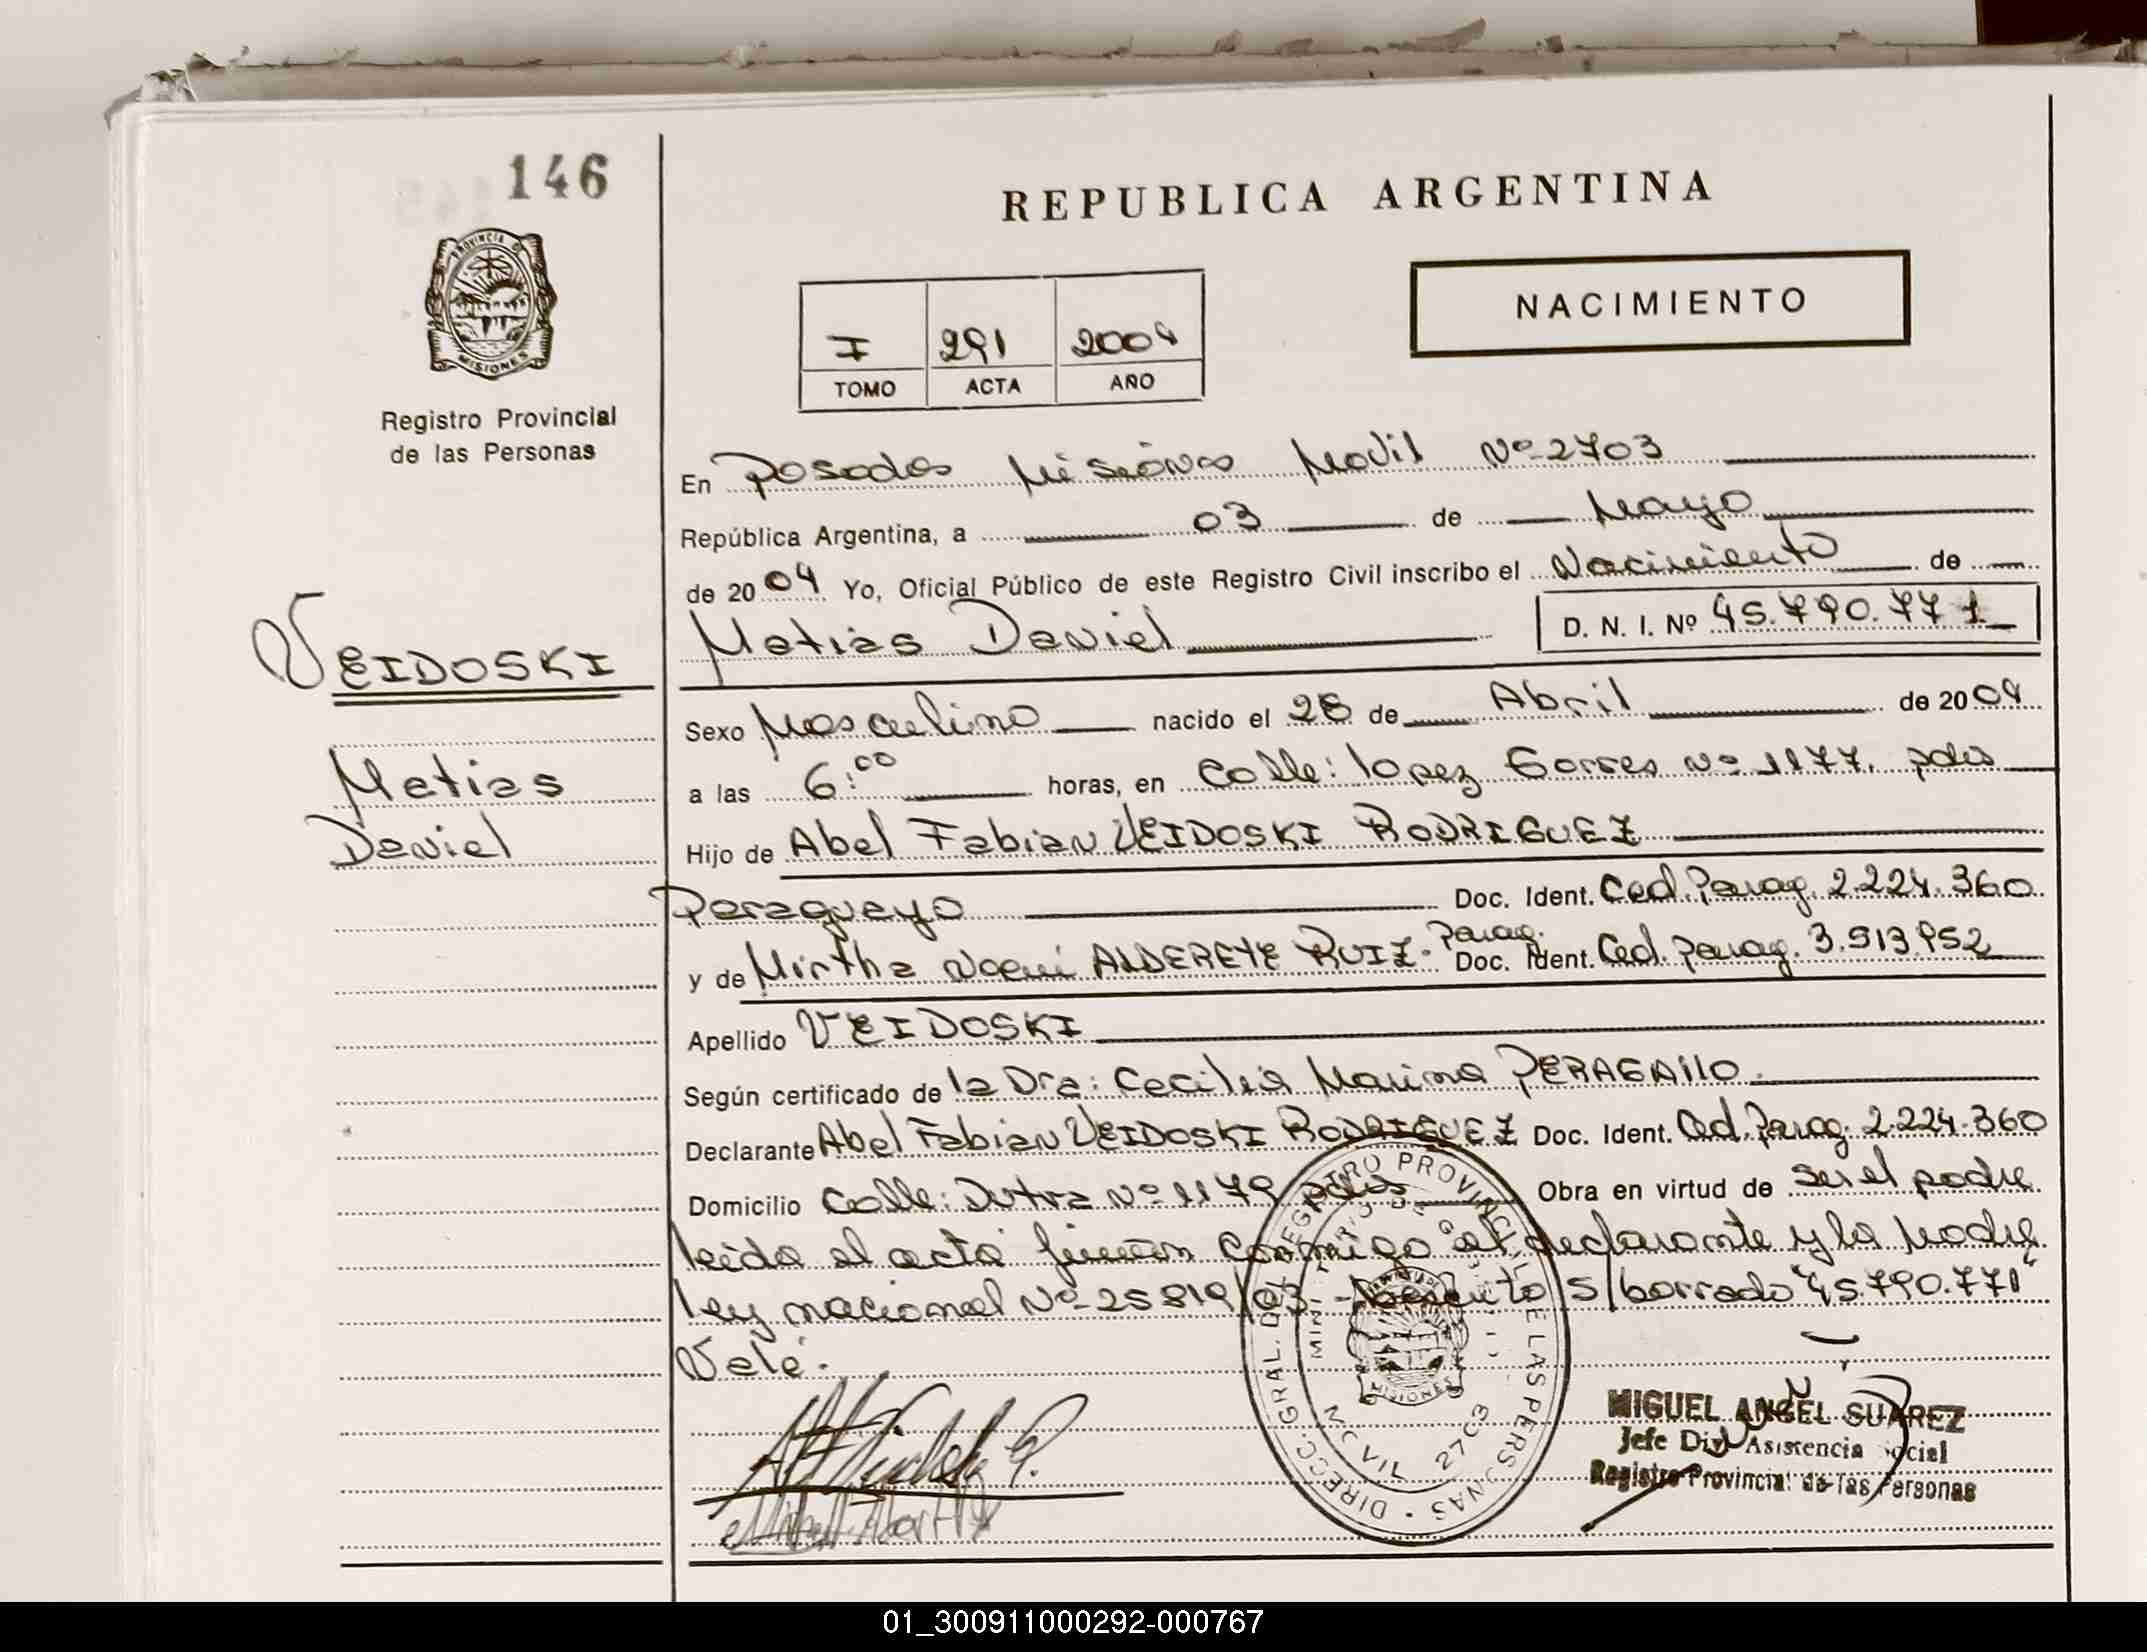 146
REPUBLICA ARGENTINA
PROVINCIA DE
MISIONES
Registro Provincial
de las Personas
I 291 2004
TOMO ACTA AÑO
NACIMIENTO
En Posadas Misiones Movil Nº 2703
República Argentina, a 03 de Mayo
de 2004 Yo, Oficial Público de este Registro Civil inscribo el Nacimiento de
Matias Daniel D. N. I. Nº 45.790.771
VEIDOSKI
Matias
Daniel
Sexo Masculino nacido el 28 de Abril de 2004
a las 6:00 horas, en Calle: lopez Torres Nº 1177. pdas
Hijo de Abel Fabian VEIDOSKI RODRIGUEZ
Paraguayo Doc. Ident. Ced. Parag. 2.224.360
y de Mirtha Noemi ALDERETE RUIZ - Parag. Doc. Ident. Ced. parag. 3.513.952
Apellido VEIDOSKI
Según certificado de la Dra: Cecilia Marina PERAGAllO
Declarante Abel Fabian VEIDOSKI RODRIGUEZ Doc. Ident. Ced. Parag. 2.224.360
Domicilio Calle: Dutra Nº 1179 pdas Obra en virtud de ser el padre
leida el acta firman conmigo el declarante y la Madre
ley nacional Nº 25819/03 - s/borrado "45.790.771"
Vale.
DIRECC. GRAL. DEL REGISTRO PROVINCIAL DE LAS PERSONAS
MOVIL 2703
MISIONES
MIGUEL ANGEL SUAREZ
Jefe Div. Asistencia Social
Registro Provincial de las Personas
01_300911000292-000767